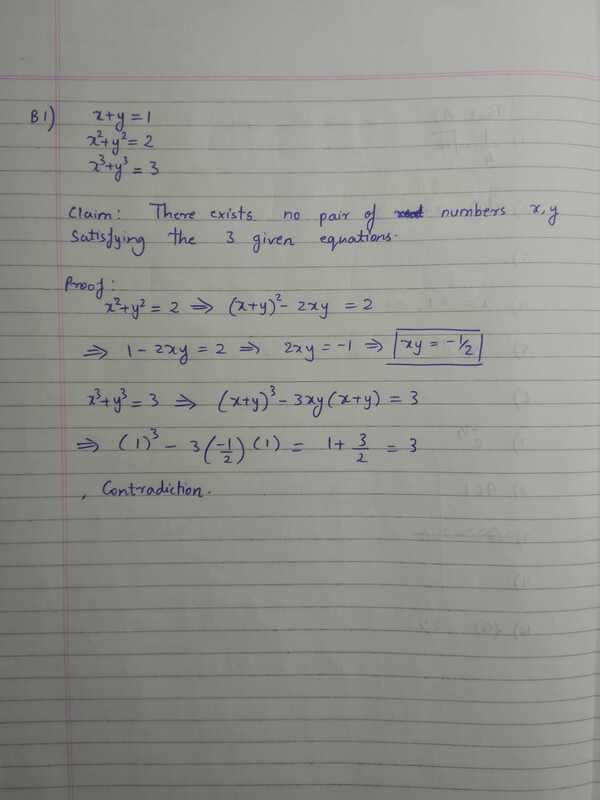 B1) x+y = 1
x²+y² = 2
x³+y³ = 3
Claim: There exists no pair of numbers x,y
Satisfying the 3 given equations.
Proof:
x²+y² = 2 ⇒ (x+y)² - 2xy = 2
⇒ 1 - 2xy = 2 ⇒ 2xy = -1 ⇒ xy = -1/2
x³+y³ = 3 ⇒ (x+y)³ - 3xy(x+y) = 3
⇒ (1)³ - 3(-1/2)(1) = 1 + 3/2 = 3
, Contradiction.